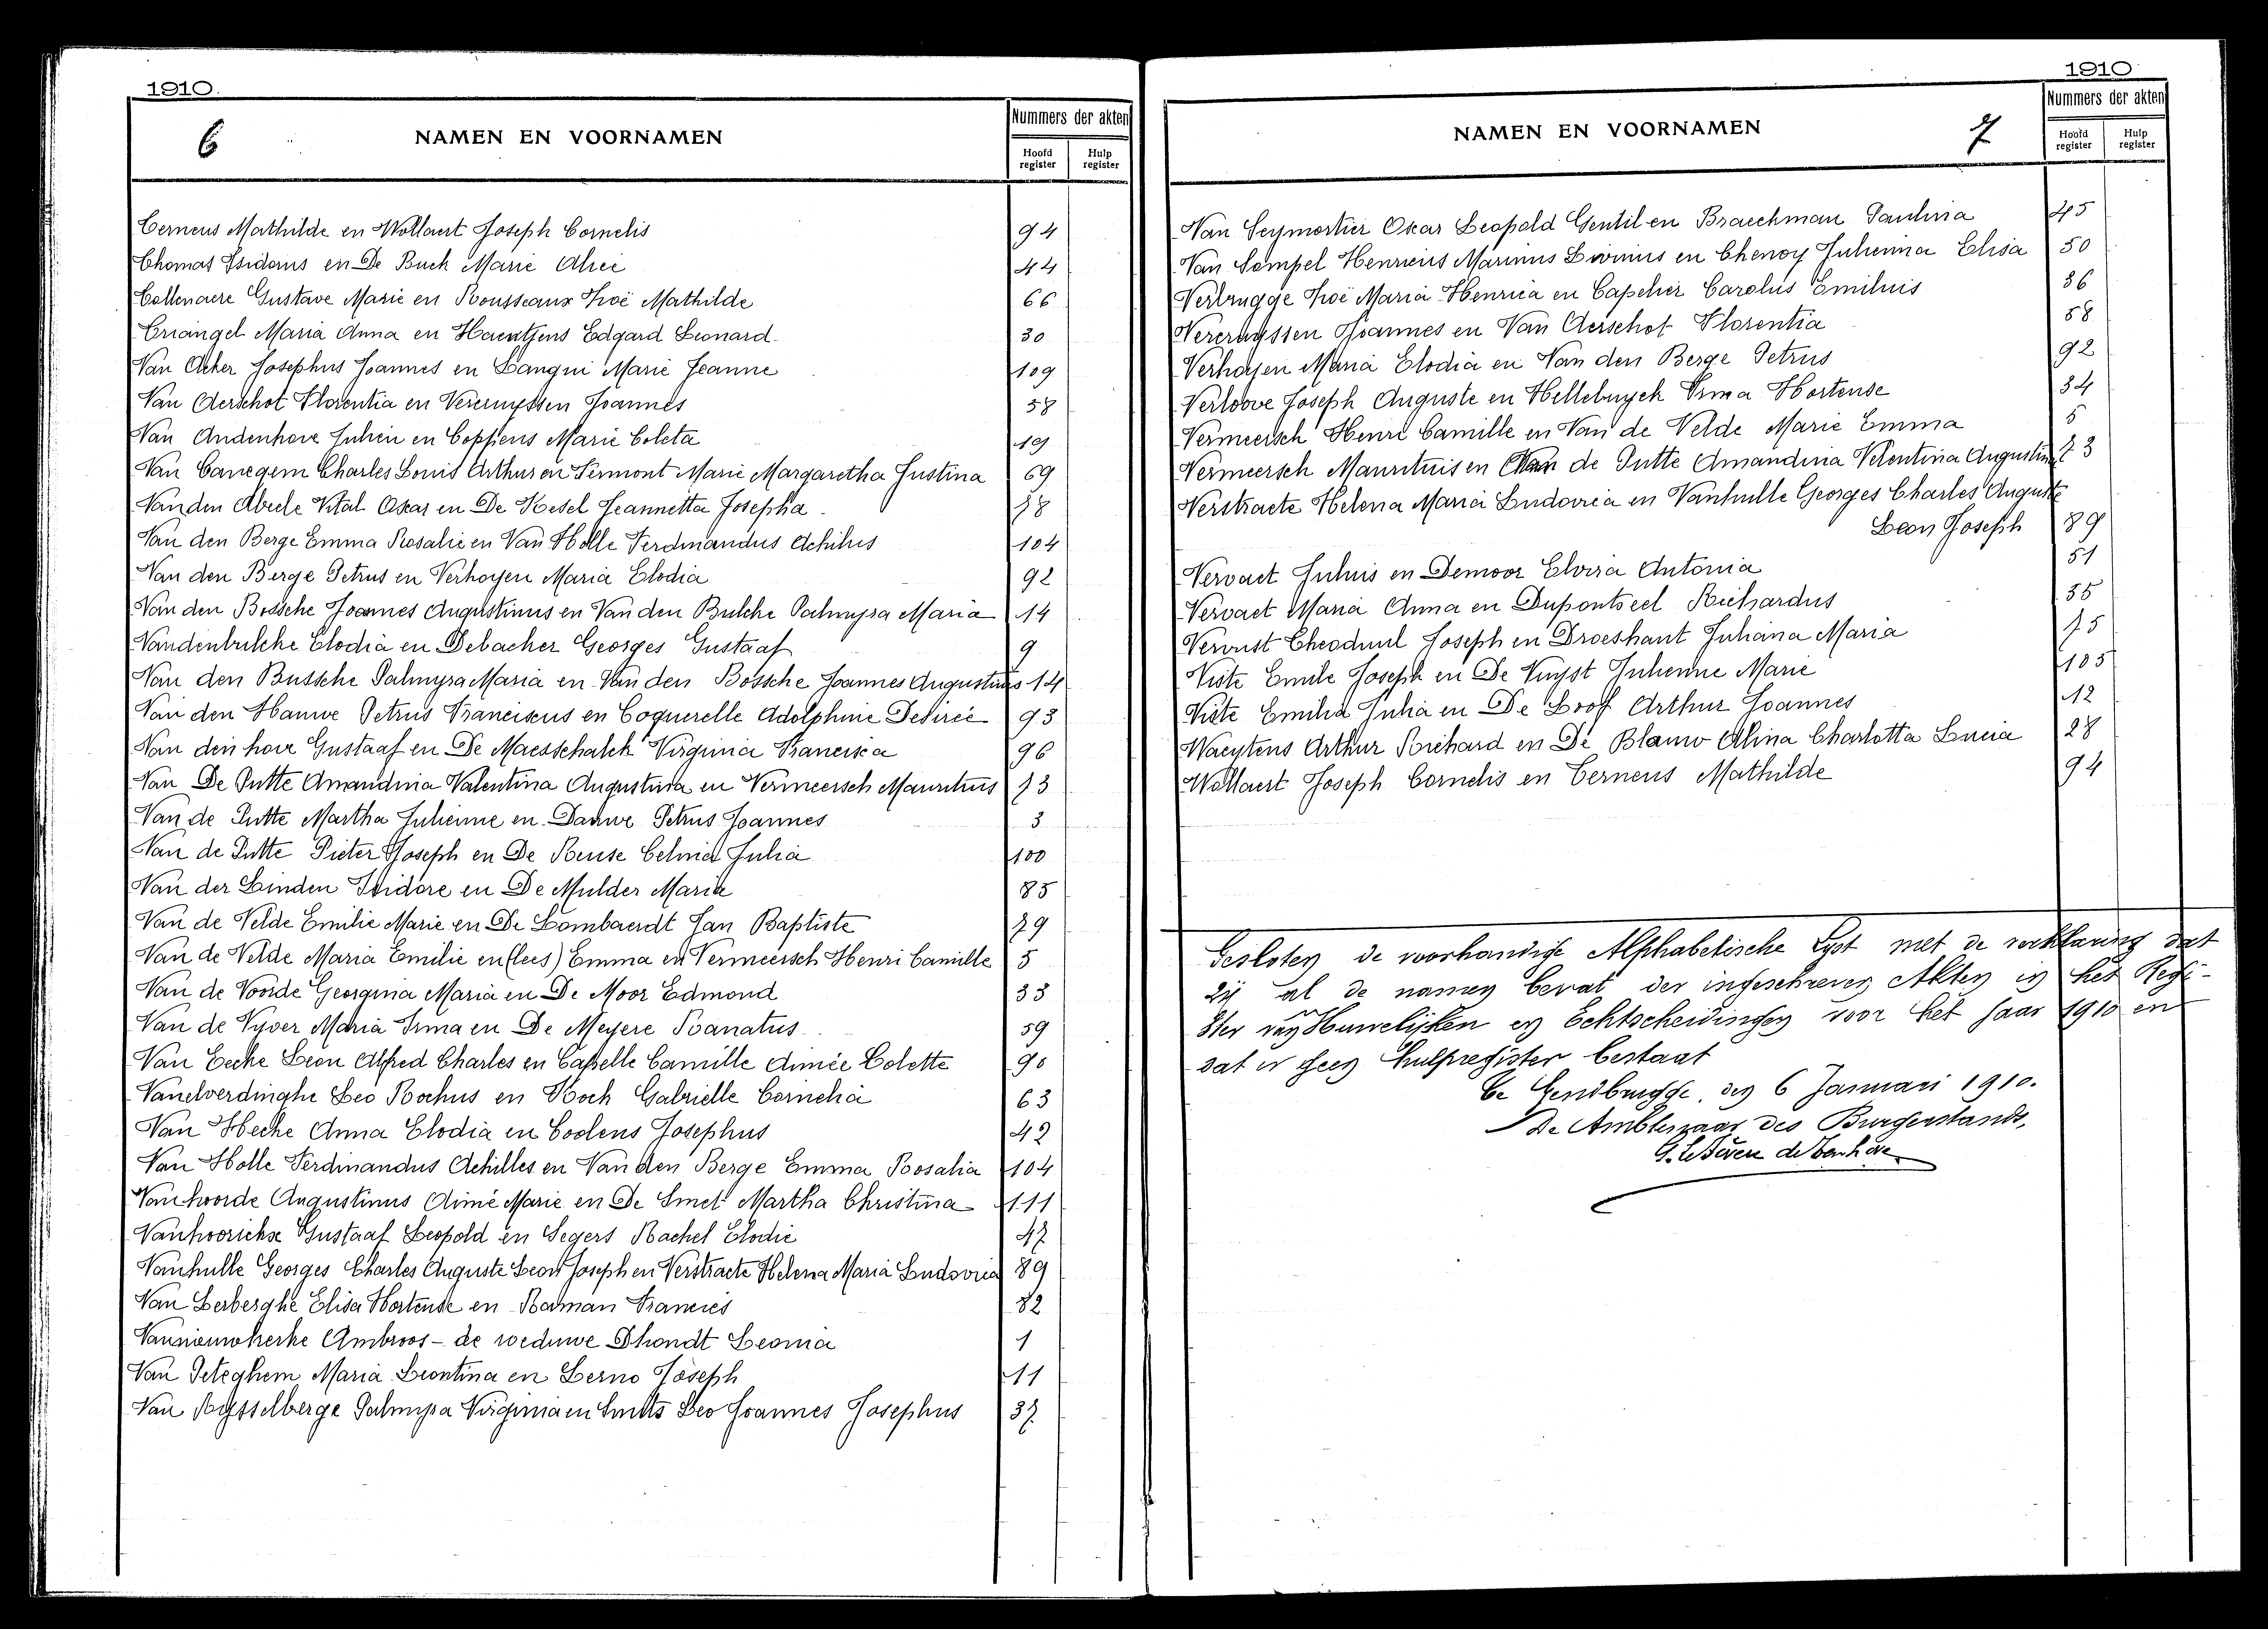 1910.
6 NAMEN EN VOORNAMEN Nummers der akten
Hoofd register Hulp register
Terneus Mathilde en Wollaert Joseph Cornelis 94
Thomas Isidorus en De Buck Marie Alice 44
Tollenaere Gustave Marie en Rousseaux Zoë Mathilde 66
Triangel Maria Anna en Haentjens Edgard Leonard 30
Van Acker Josephus Joannes en Langui Marie Jeanne 109
Van Aerschot Florentia en Vercruyssen Joannes 58
Van Audenhove Julien en Coppens Marie Coleta 19
Van Canegem Charles Louis Arthur en Sirmont Marie Margaretha Justina 69
Van den Abeele Vital Oscar en De Kesel Jeannetta Josepha 78
Van den Berge Emma Rosalie en Van Holle Ferdinandus Achilus 104
Van den Berge Petrus en Verhoyen Maria Elodia 92
Van den Bossche Joannes Augustinus en Van den Bulcke Palmyra Maria 14
Vandenbulcke Elodia en Debacher Georges Gustaaf 9
Van den Bussche Palmyra Maria en Van den Bossche Joannes Augustinus 14
Van den Hauwe Petrus Franciscus en Coquerelle Adolphine Desirée 93
Van den hove Gustaaf en De Maesschalck Virginia Francisca 96
Van De Putte Amandina Valentina Augustina en Vermeersch Mauritius 73
Van de Putte Martha Julienne en Dauwe Petrus Joannes 3
Van de Putte Pieter Joseph en De Reuse Celina Julia 100
Van der Linden Isidore en De Mulder Maria 85
Van de Velde Emilie Marie en De Lombaerdt Jan Baptiste 79
Van de Velde Maria Emilie en (lees) Emma en Vermeersch Henri Camille 5
Van de Voorde Georgina Maria en De Moor Edmond 33
Van de Vyver Maria Irma en De Meyere Ranatus 59
Van Eecke Leon Alfred Charles en Capelle Camille Aimée Colette 90
Vanelverdinghe Leo Rochus en Kock Gabrielle Cornelia 63
Van Hecke Anna Elodia en Coolens Josephus 42
Van Holle Ferdinandus Achilles en Van den Berge Emma Rosalia 104
Van hoorde Augustinus Aimé Marie en De Smet Martha Christina 111
Vanhoorickse Gustaaf Leopold en Segers Rachel Elodie 47
Vanhulle Georges Charles Auguste Leon Joseph en Verstraete Helena Maria Ludovica 89
Van Lerberghe Elisa Hortense en Raman Francies 82
Vannieuwkerke Ambroos - de weduwe Dhondt Leonia 1
Van Peteghem Maria Leontina en Lerno Joseph 11
Van Rysselberge Palmyra Virginia en Smits Leo Joannes Josephus 37
1910
NAMEN EN VOORNAMEN 7 Nummers der akten
Hoofd register Hulp register
Van Seymortier Oscar Leopold Gentil en Braeckman Paulina 45
Van Sompel Henricus Marinus Livinus en Thenoy Julienna Elisa 50
Verbrugge Zoë Maria Henrica en Capelier Carolus Emilius 36
Vercruyssen Joannes en Van Aerschot Florentia 58
Verhoyen Maria Elodia en Van den Berge Petrus 92
Verloove Joseph Auguste en Hellebuyck Irma Hortense 34
Vermeersch Henri Camille en Van de Velde Marie Emma 5
Vermeersch Mauritius en Van de Putte Amandina Velentina Augustina 73
Verstraete Helena Maria Ludovica en Vanhulle Georges Charles Auguste
Leon Joseph 89
Vervaet Julius en Demoor Elvira Antonia 51
Vervaet Maria Anna en Dupontseel Richardus 35
Vervust Theoduul Joseph en Droeshaut Juliana Maria 75
Viste Emile Joseph en De Vuyst Julienne Marie 105
Viste Emilia Julia en De Loof Arthur Joannes 12
Waeytens Arthur Richard en De Blauw Alina Charlotta Lucia 28
Wollaert Joseph Cornelis en Terneus Mathilde 94
Gesloten de voorhandige Alphabetische Lyst met de verklaring dat
zij al de namen bevat der ingeschreven Akten in het Regi-
ster van Huwelijken en Echtscheidingen voor het jaar 1910 en
dat er geen hulpregister bestaat
Te Gendbrugge, den 6 Januari 1910.
De Ambtenaar des Burgerstands,